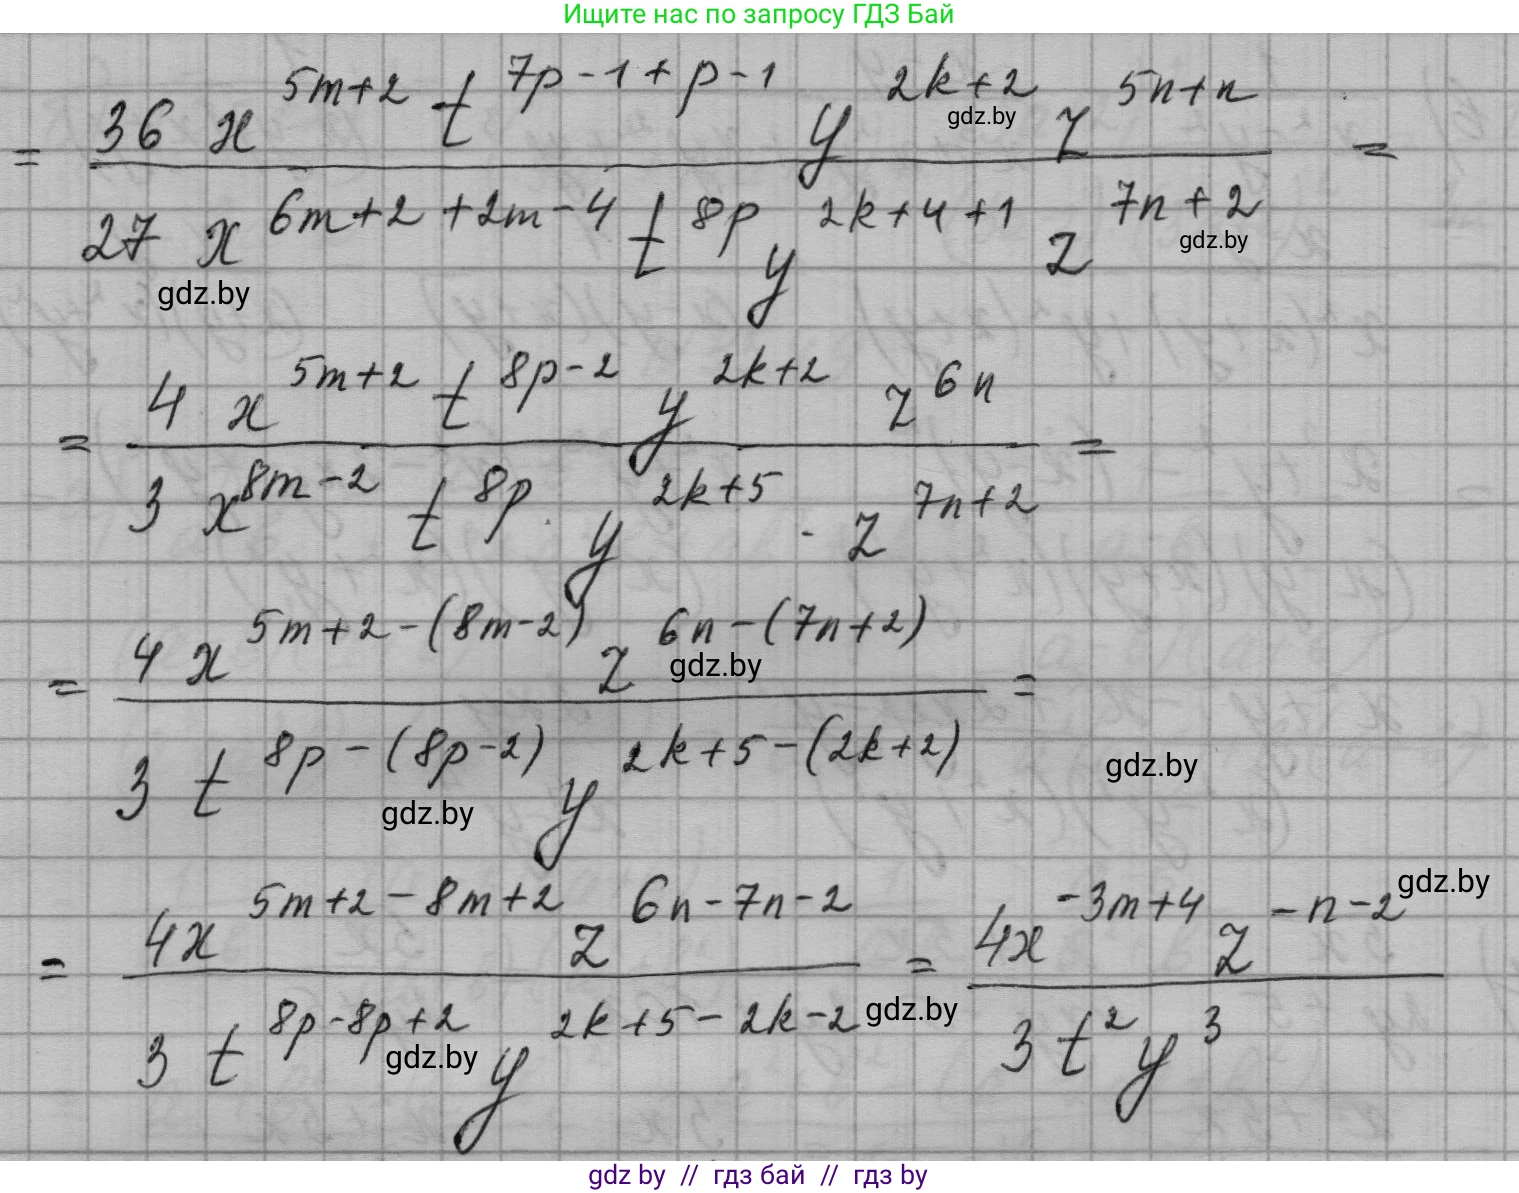 Ищите нас по запросу ГДЗ Бай
= (36 x^(5m+2) t^(7p-1+p-1) y^(2k+2) z^(5n+n)) / (27 x^(6m+2+2m-4) t^(8p) y^(2k+4+1) z^(7n+2)) =
gdz.by
gdz.by
gdz.by
= (4 x^(5m+2) t^(8p-2) y^(2k+2) z^(6n)) / (3 x^(8m-2) t^(8p) · y^(2k+5) · z^(7n+2)) =
= (4 x^(5m+2-(8m-2)) z^(6n-(7n+2))) / (3 t^(8p-(8p-2)) y^(2k+5-(2k+2))) =
gdz.by
gdz.by
gdz.by
= (4x^(5m+2-8m+2) z^(6n-7n-2)) / (3 t^(8p-8p+2) y^(2k+5-2k-2)) = (4x^(-3m+4) z^(-n-2)) / (3 t^2 y^3)
gdz.by
gdz.by
gdz.by
gdz by // гдз бай // гдз by